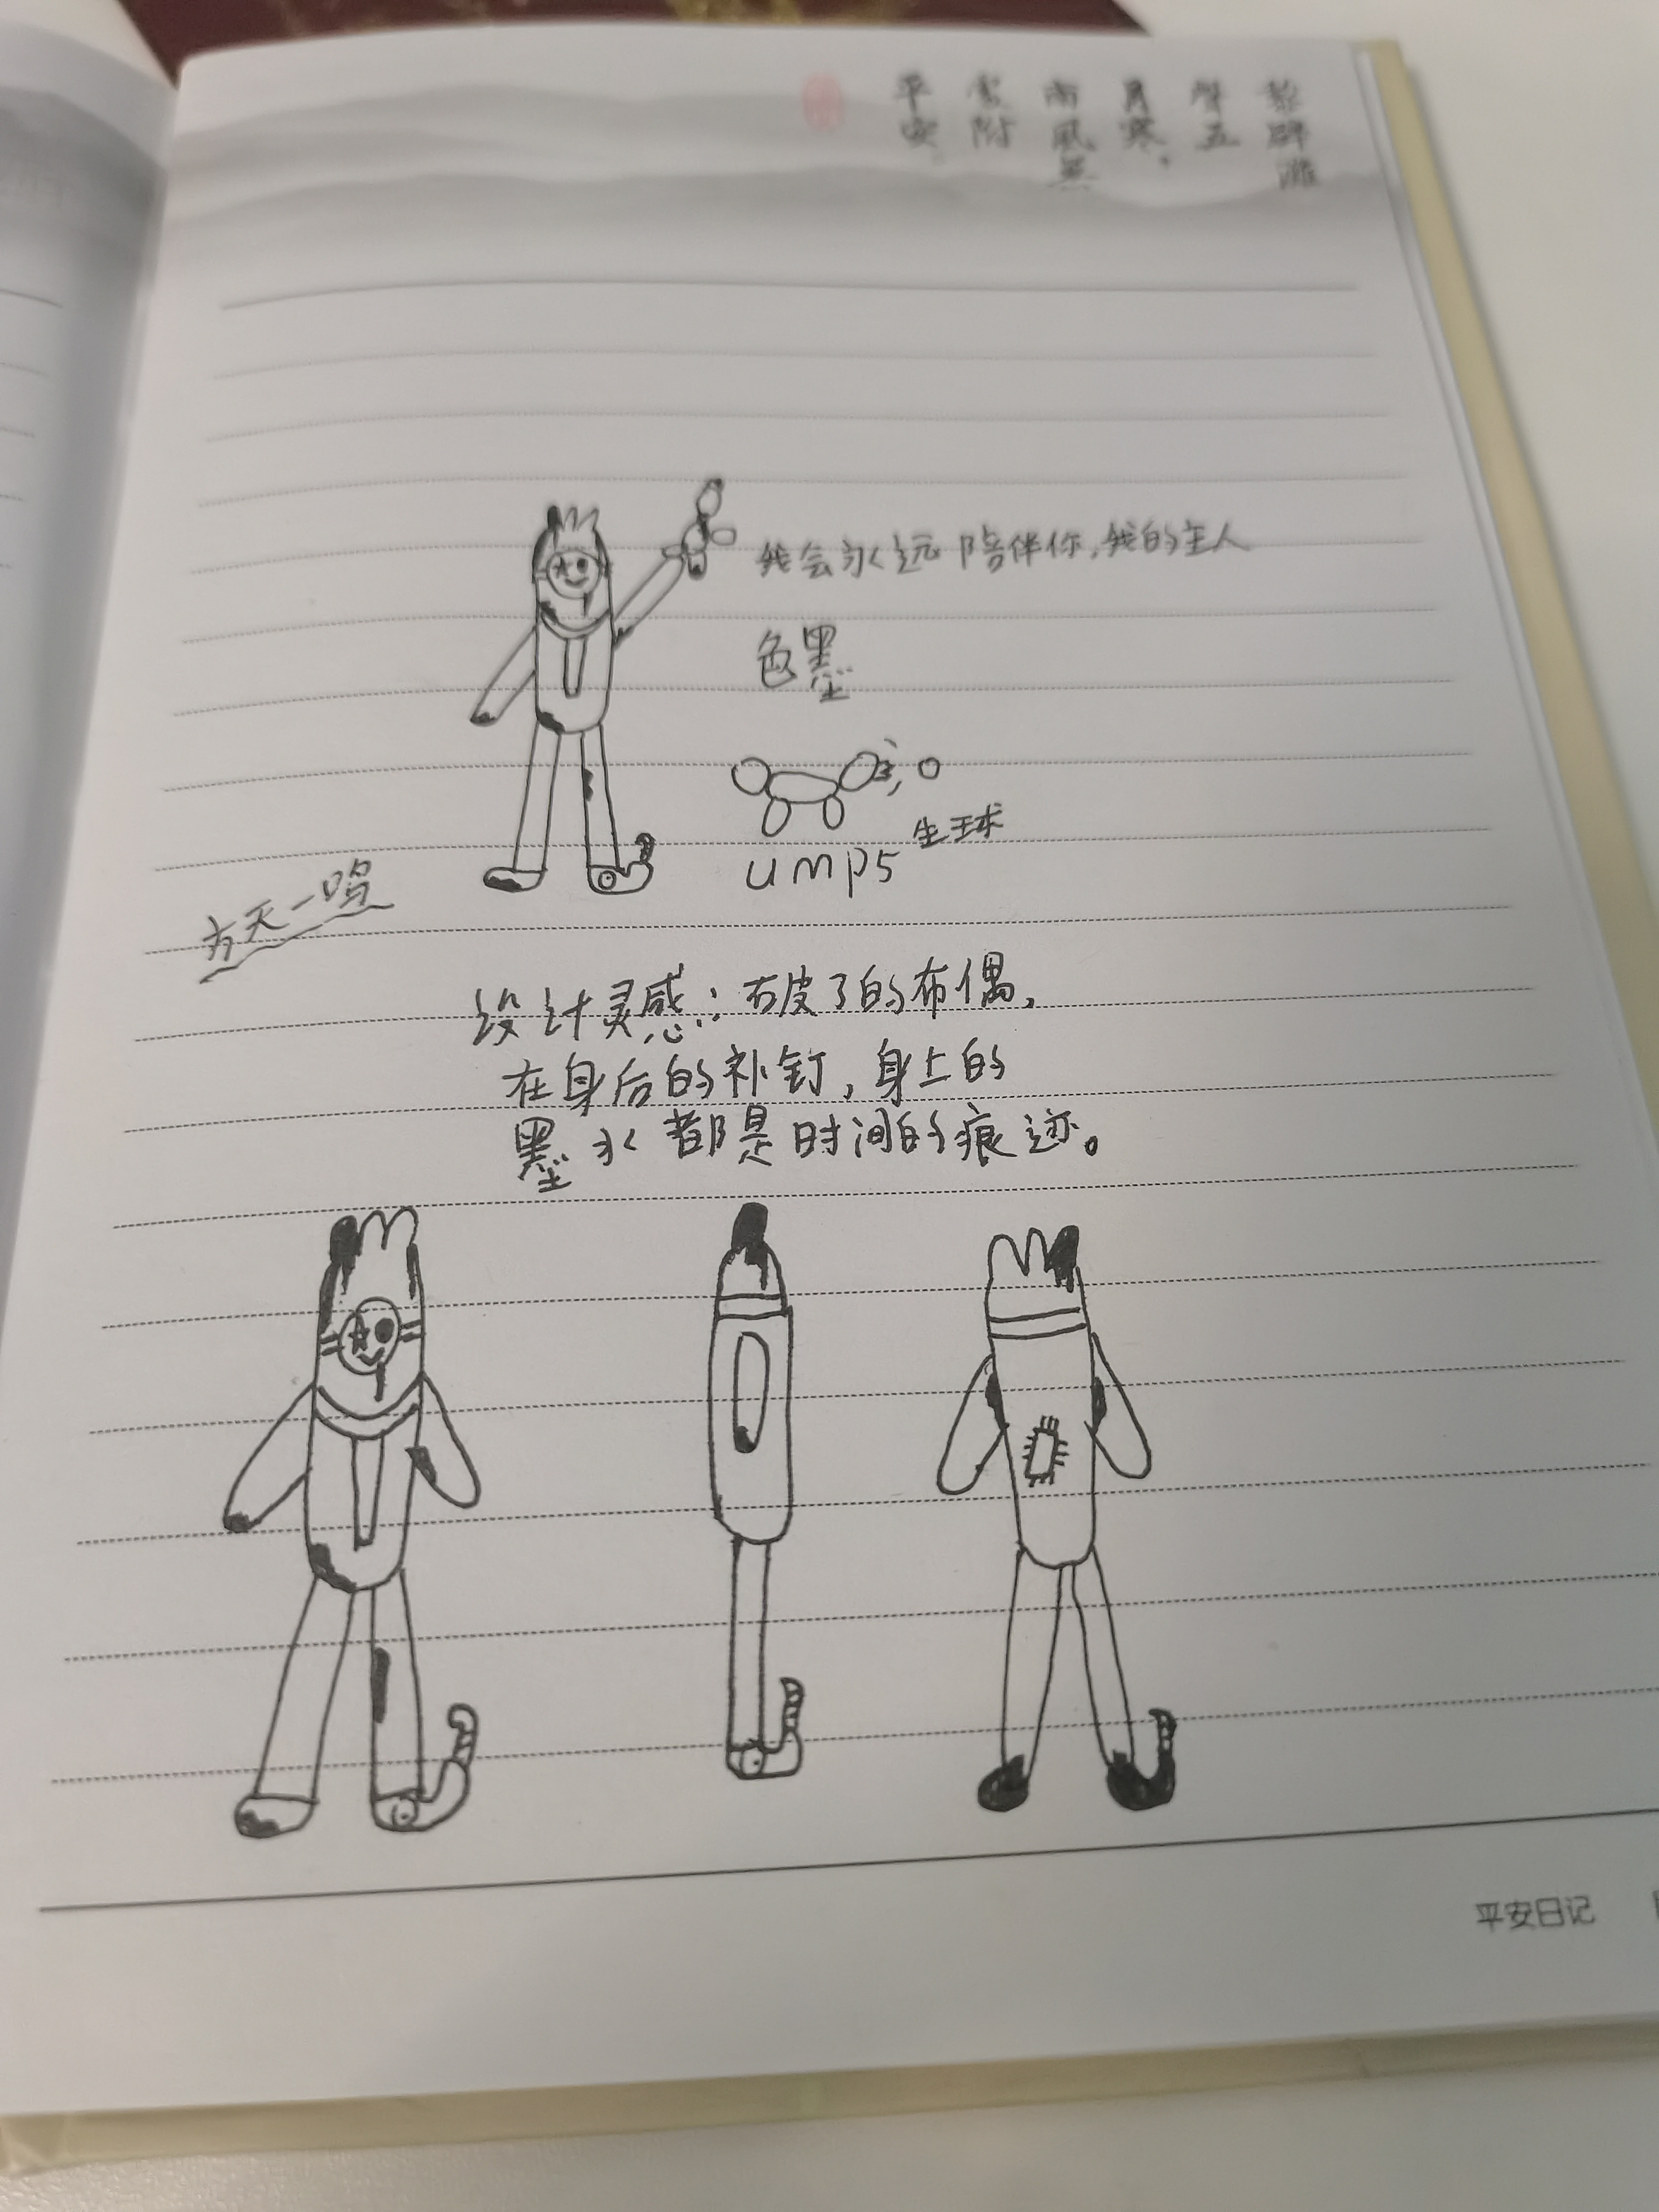 聲五
月寒，
南風無
平安
我会永远陪伴你，我的主人
色墨
生球
umps
设计灵感：破了的布偶，
在身后的补钉，身上的
墨水都是时间的痕迹。
平安日记